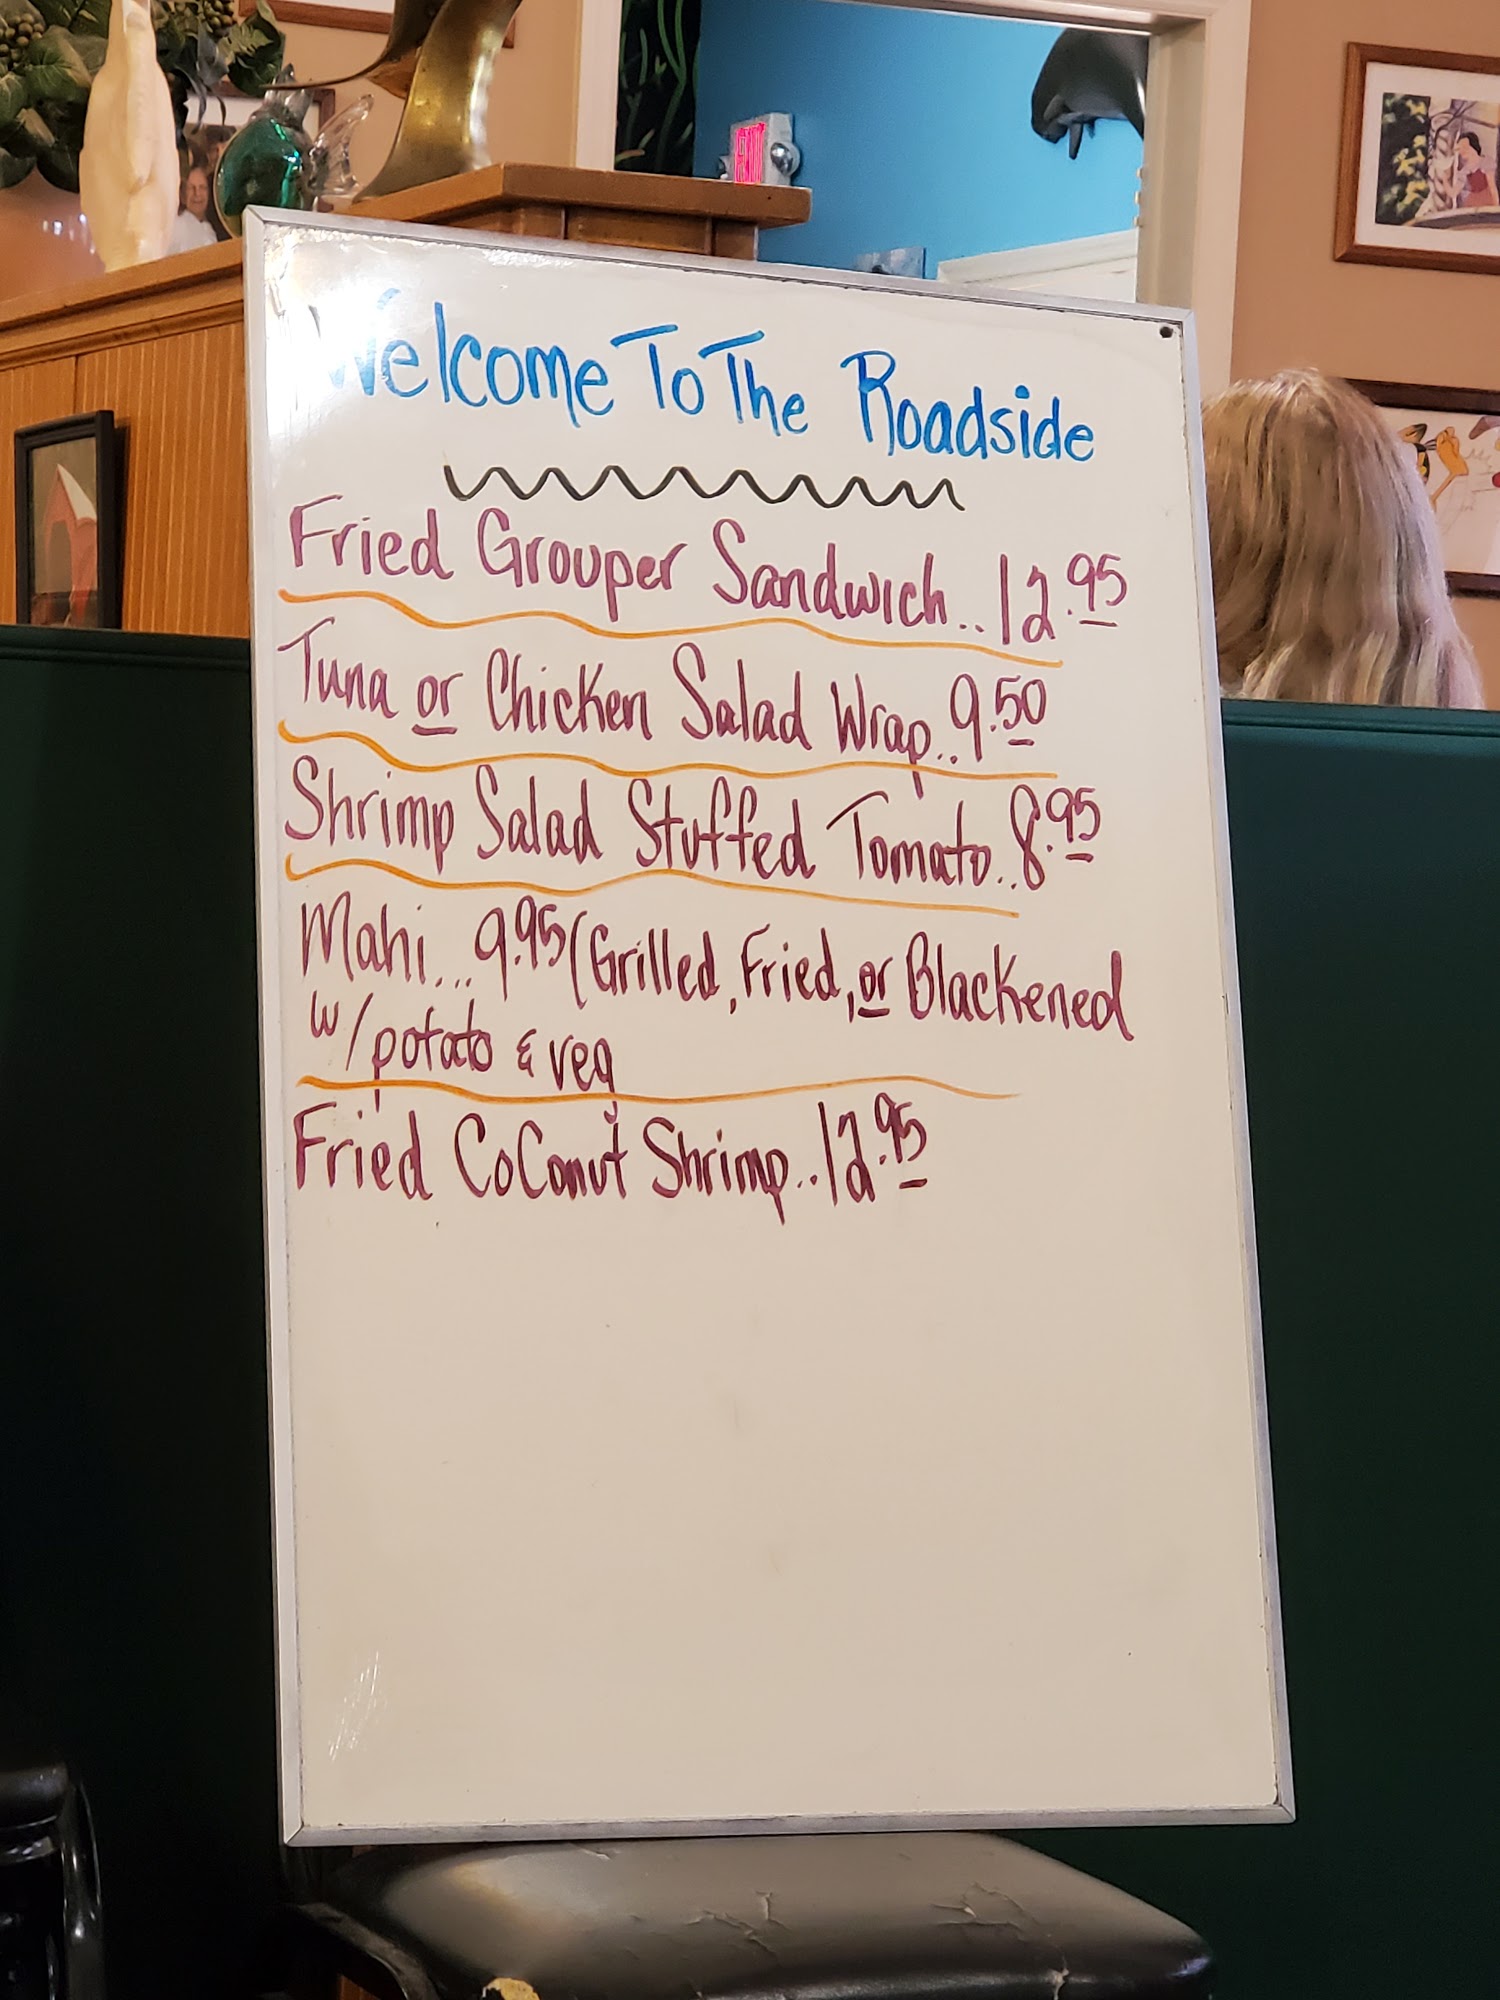 Welcome To The Roadside
Fried Grouper Sandwich..12.95
Tuna or Chicken Salad Wrap..9.50
Shrimp Salad Stuffed Tomato..8.95
Mahi...9.95(Grilled, Fried, or Blackened
w/potato & veg
Fried CoConut Shrimp..12.95